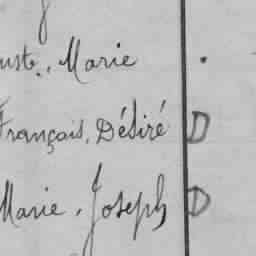 uste, Marie .
François, Désiré D
Marie, Joseph D